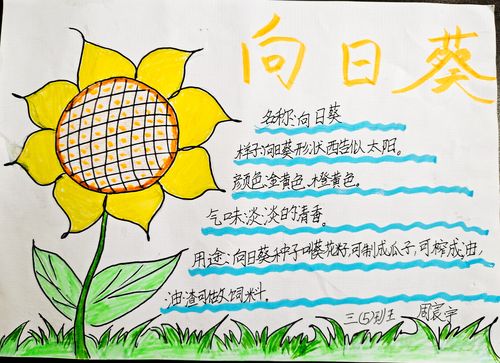 向日葵
名称:向日葵
样子:向日葵形状酷似太阳。
颜色:金黄色、橙黄色。
气味:淡淡的清香。
用途:向日葵种子叫葵花籽,可制成瓜子,可榨成油,
油渣可做饲料。
三(5)班 周宸宇